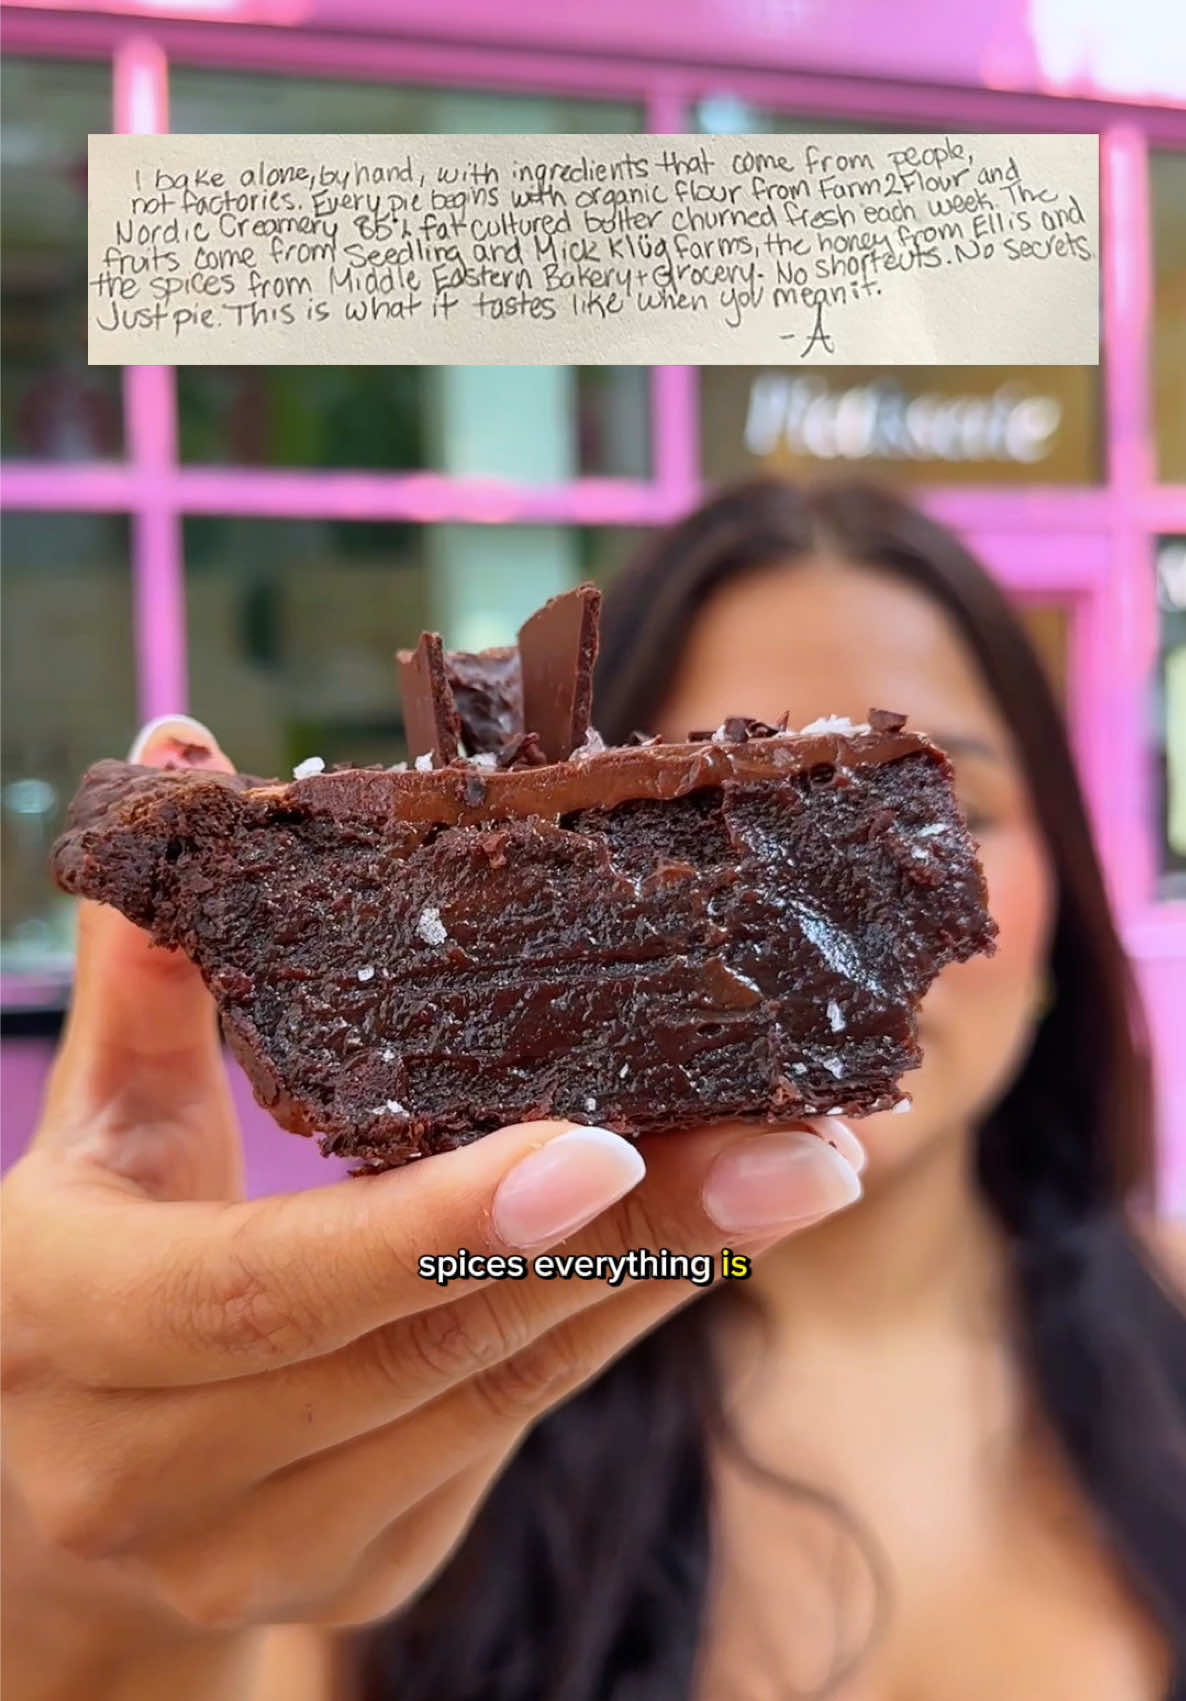 I bake alone, by hand, with ingredients that come from people,
not factories. Every pie begins with organic flour from Farm2Flour and
Nordic Creamery 85% fat cultured butter churned fresh each week. The
fruits come from Seedling and Mick Klüg farms, the honey from Ellis and
the spices from Middle Eastern Bakery + Grocery. No shortcuts. No secrets.
Just pie. This is what it tastes like when you mean it.
- A
spices everything is